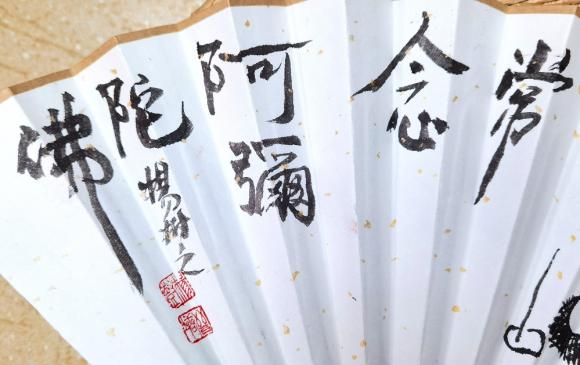 常
念
阿彌
陀
佛